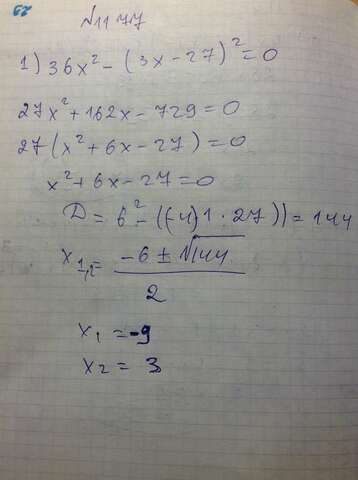 29
№1177
1) 36x² - (3x - 27)² = 0
27x² + 162x - 729 = 0
27(x² + 6x - 27) = 0
x² + 6x - 27 = 0
D = 6² - ((-4)1 · 27)) = 144
x₁,₂ = (-6 ± √144) / 2
x₁ = -9
x₂ = 3